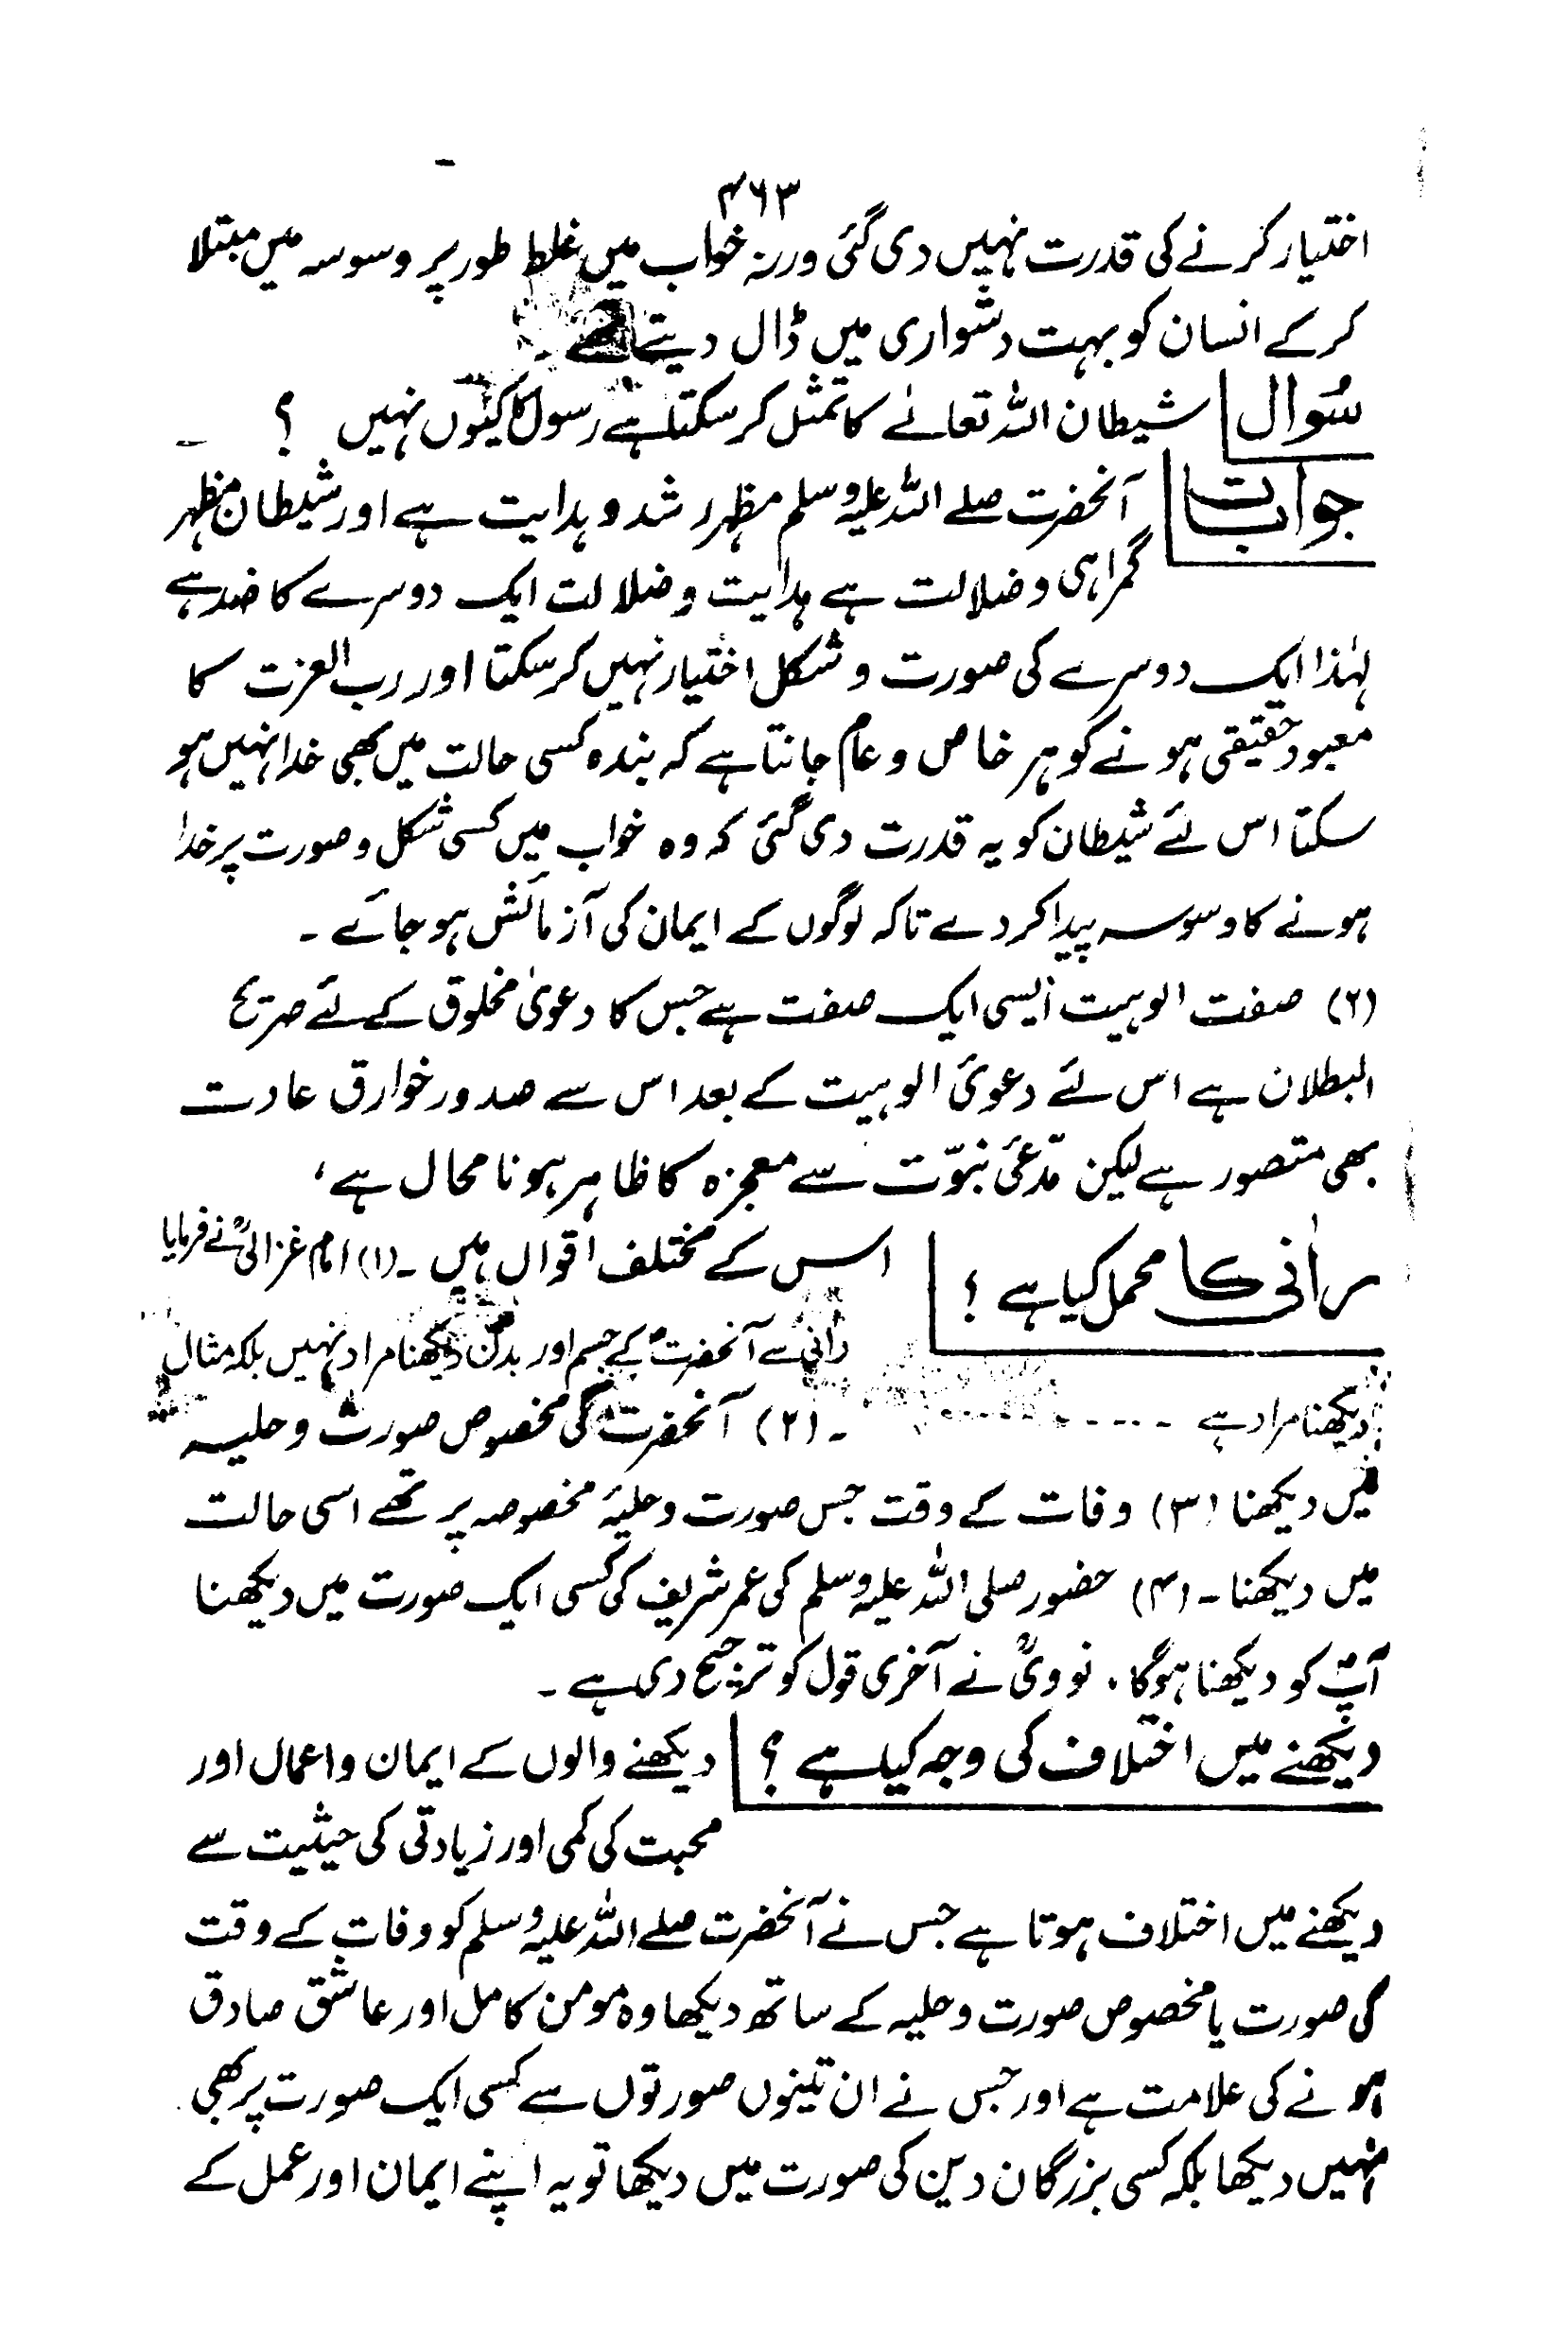 ۴۶۳
اختیار کرنے کی قدرت نہیں دی گئی ورنہ خواب میں غلط طور پر وسوسہ میں مبتلا
کرکے انسان کو بہت دشواری میں ڈال دیتے تھے ۔
سُوال شیطان اللہ تعالےٰ کا تمثل کر سکتا ہے رسول کا کیوں نہیں ؟
جوابات آنحضرت صلے اللہ علیہ وسلم مظہر رشد و ہدایت ہے اور شیطان مظہر
گمراہی و ضلالت ہے ہدایت و ضلالت ایک دوسرے کا ضد ہے
لہٰذا ایک دوسرے کی صورت و شکل اختیار نہیں کر سکتا اور رب العزت کا
معبود حقیقی ہونے کو ہر خاص و عام جانتا ہے کہ بندہ کسی حالت میں بھی خدا نہیں ہو
سکتا اس لئے شیطان کو یہ قدرت دی گئی کہ وہ خواب میں کسی شکل و صورت پر خدا
ہونے کا وسوسہ پیدا کر دے تاکہ لوگوں کے ایمان کی آزمائش ہو جائے ۔
(۲) صفت الوہیت ایسی ایک صفت ہے جس کا دعویٰ مخلوق کے لئے صریح
البطلان ہے اس لئے دعویٔ الوہیت کے بعد اس سے صدور خوارق عادت
بھی متصور ہے لیکن مدّعیٔ نبوّت سے معجزہ کا ظاہر ہونا محال ہے ،
راٰنی کا محمل کیا ہے ؟ اس کے مختلف اقوال ہیں ۔ (۱) امام غزالیؒ نے فرمایا
راٰنی سے آنحضرتؐ کے جسم اور بدن دیکھنا مراد نہیں بلکہ مثال
دیکھنا مراد ہے ۔ (۲) آنحضرتؐ کی مخصوص صورت و حلیہ
میں دیکھنا (۳) وفات کے وقت جس صورت و حلیۂ مخصوصہ پر تھے اسی حالت
میں دیکھنا ۔ (۴) حضور صلی اللہ علیہ وسلم کی عمر شریف کی کسی ایک صورت میں دیکھنا
آپؐ کو دیکھنا ہوگا ۔ نوویؒ نے آخری قول کو ترجیح دی ہے ۔
دیکھنے میں اختلاف کی وجہ کیا ہے ؟ دیکھنے والوں کے ایمان و اعمال اور
محبت کی کمی اور زیادتی کی حیثیت سے
دیکھنے میں اختلاف ہوتا ہے جس نے آنحضرت صلے اللہ علیہ وسلم کو وفات کے وقت
کی صورت یا مخصوص صورت و حلیہ کے ساتھ دیکھا وہ مومن کامل اور عاشق صادق
ہونے کی علامت ہے اور جس نے ان تینوں صورتوں سے کسی ایک صورت پر بھی
نہیں دیکھا بلکہ کسی بزرگان دین کی صورت میں دیکھا تو یہ اپنے ایمان اور عمل کے